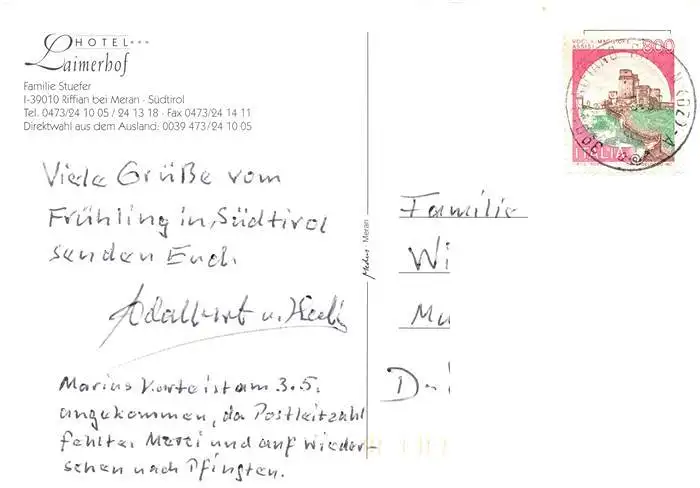 HOTEL ***
Laimerhof
Familie Stuefer
I-39010 Riffian bei Meran · Südtirol
Tel. 0473/24 10 05 / 24 13 18 · Fax 0473/24 14 11
Direktwahl aus dem Ausland: 0039 473/24 10 05
Viele Grüße vom
Frühling in Südtirol
senden Euch
Adalbert u.
Marius Karte ist am 3.5.
angekommen, da Postleitzahl
fehlte. Merci und auf Wieder-
sehen nach Pfingsten.
Medus · Meran
800
ITALIA
Familie
Wi
Mu
D-